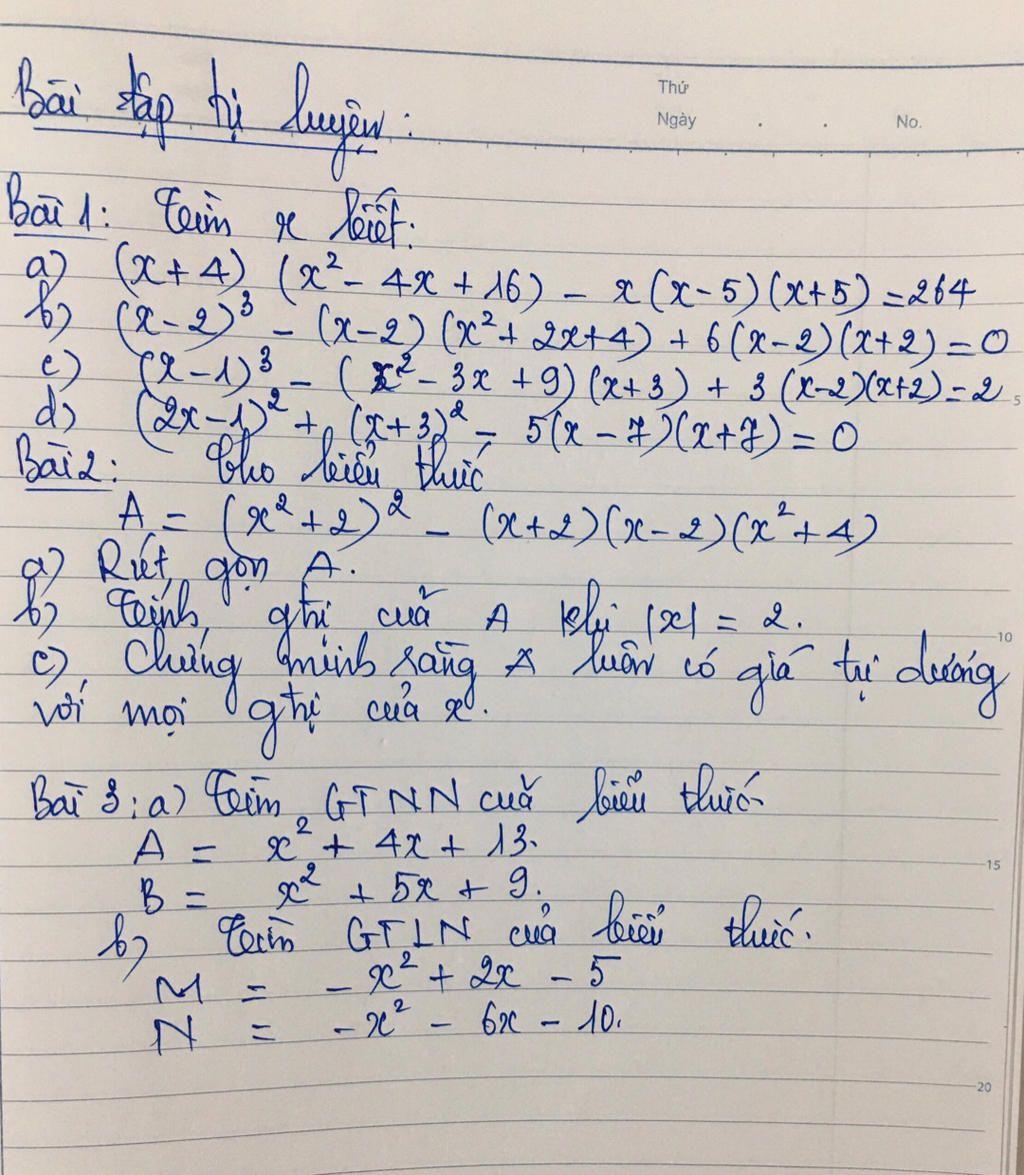 Thứ
Ngày . . No.
Bài tập tự luyện:
Bài 1: Tìm x biết:
a) (x+4) (x² - 4x + 16) - x(x-5)(x+5) = 264
b) (x-2)³ - (x-2)(x²+2x+4) + 6(x-2)(x+2) = 0
c) (x-1)³ - (x² - 3x + 9)(x+3) + 3(x-2)(x+2) = 2
5
d) (2x-1)² + (x+3)² - 5(x-7)(x+7) = 0
Bài 2: Cho biểu thức
A = (x²+2)² - (x+2)(x-2)(x²+4)
a) Rút gọn A.
b) Tính gtrị của A khi |x| = 2.
10
c) Chứng minh rằng A luôn có giá trị dương
với mọi gtrị của x.
Bài 3: a) Tìm GTNN của biểu thức
A = x² + 4x + 13.
15
B = x² + 5x + 9.
b) Tìm GTLN của biểu thức.
M = -x² + 2x - 5
N = -x² - 6x - 10.
20